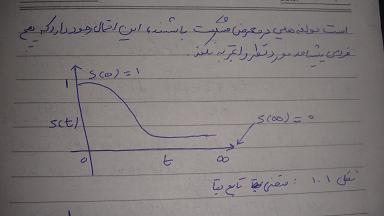 است مولفه‌هایی در معرض شکست باشند، این احتمال وجود دارد که هیچ
فردی پیشامد مورد نظر را تجربه نکند
S(0) = 1
1
S(t)
S(∞) = 0
0 t ∞
شکل ۱.۱ : منحنی تابع بقا